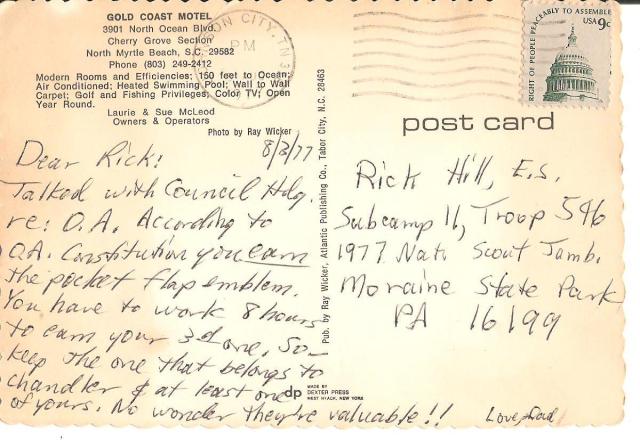 GOLD COAST MOTEL
3901 North Ocean Blvd.
Cherry Grove Section
North Myrtle Beach, S.C. 29582
Phone (803) 249-2412
Modern Rooms and Efficiencies; 150 feet to Ocean;
Air Conditioned; Heated Swimming Pool; Wall to Wall
Carpet; Golf and Fishing Privileges; Color TV; Open
Year Round.
Laurie & Sue McLeod
Owners & Operators
Photo by Ray Wicker
8/3/77
Dear Rick:
Talked with Council Hdq.
re: O.A. According to
OA. Constitution you earn
the pocket flap emblem.
You have to work 8 hours
to earn your 3rd one. So—
keep the one that belongs to
chandler & at least one
of yours. No wonder they're valuable!!
Love, Dad
Pub. by Ray Wicker, Atlantic Publishing Co., Tabor City, N.C. 28463
dp
MADE BY
DEXTER PRESS
WEST NYACK, NEW YORK
CITY, TN
PM
RIGHT OF PEOPLE PEACEABLY TO ASSEMBLE
USA 9c
post card
Rick Hill, E.S.
Subcamp 11, Troop 546
1977 Natl Scout Jamb.
Moraine State Park
PA 16199